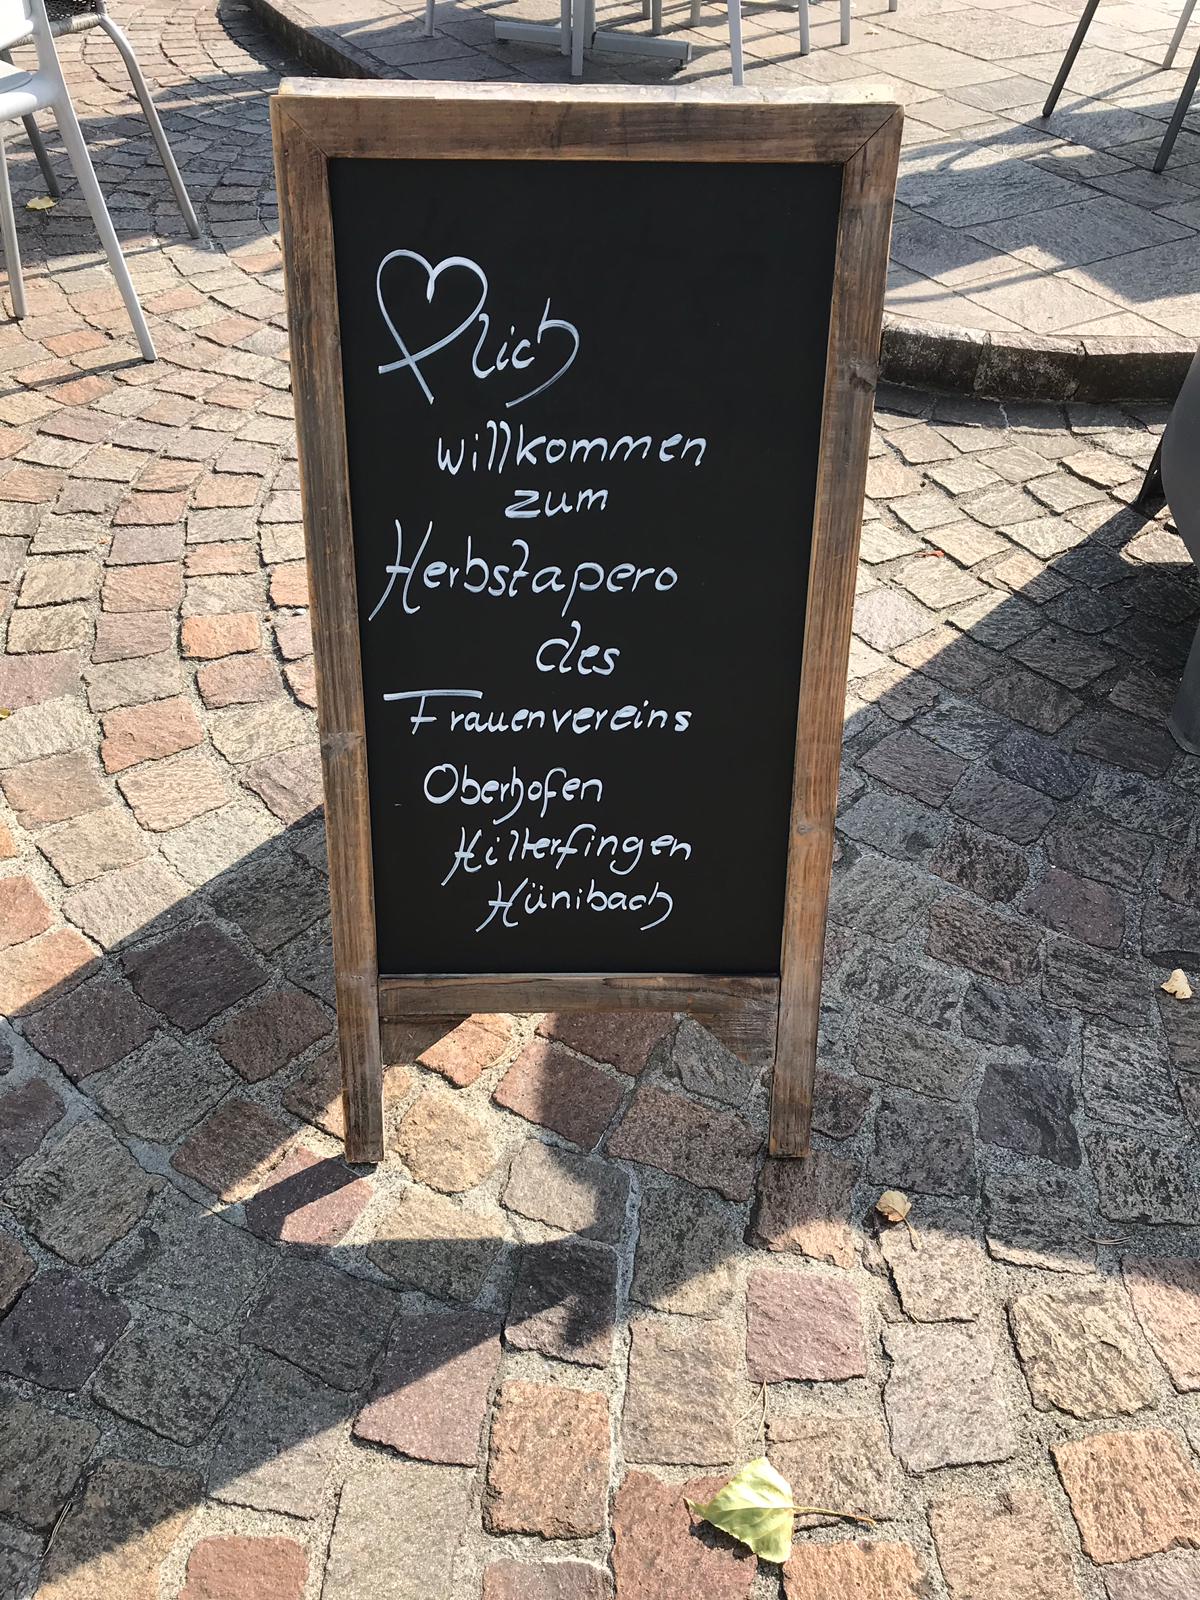 ♡lich
willkommen
zum
Herbstapero
des
Frauenvereins
Oberhofen
Hilterfingen
Hünibach